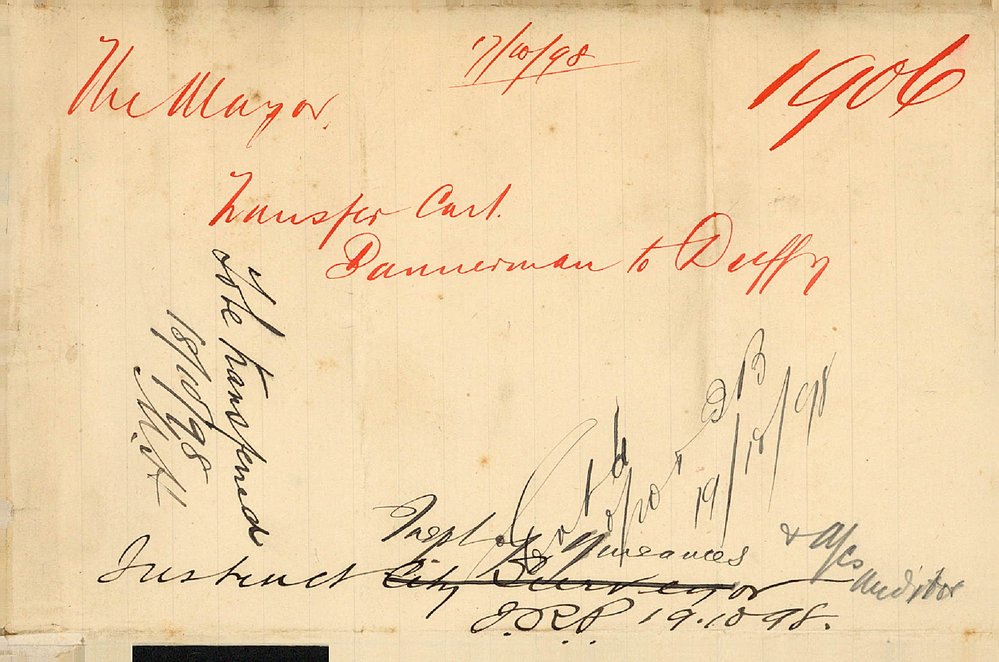 17/10/98
1906
The Mayor.
Transfer Cart.
Dannerman to Duffy
To be transferred
18/10/98
19/10/98
Inspt. of Nuisances
Instruct City Surveyor
& A/cs
Auditor
J.R.P. 19.10.98.